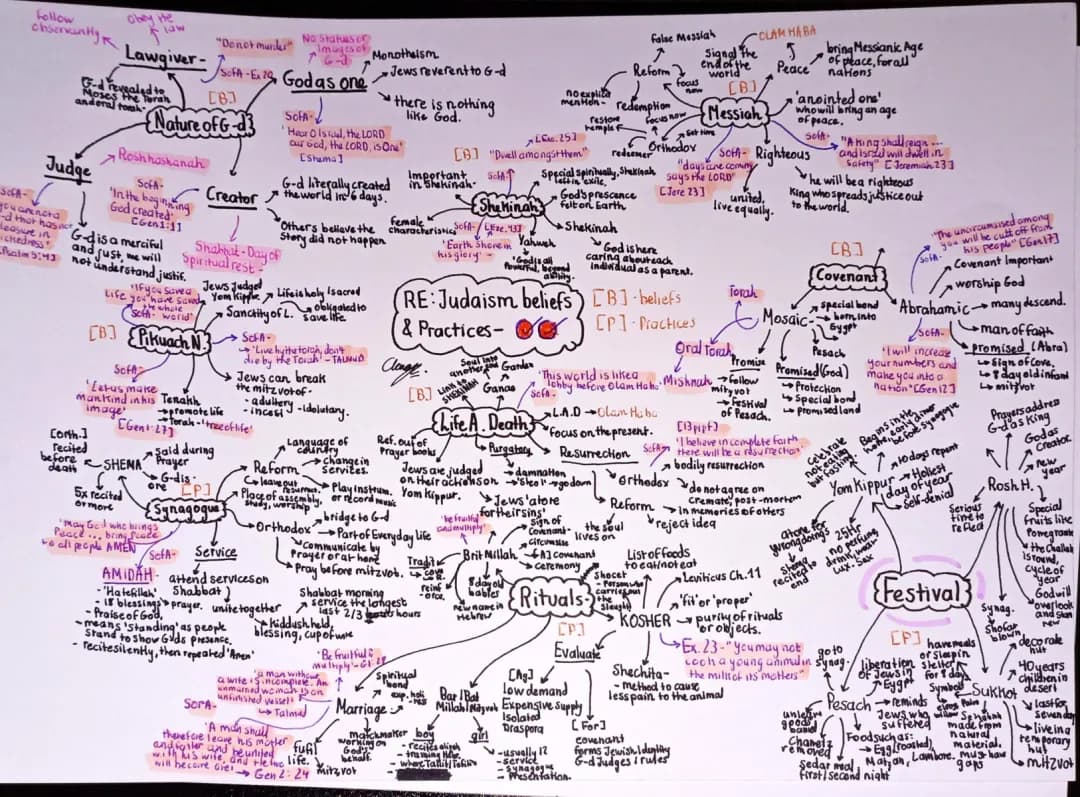 Follow
observantly
Obey the
law
Lawgiver-
"Do not murder"
SofA - Ex 20
G-d revealed to
Moses the Torah
and oral torah.
[B]
Nature of G-d
No statues or
images of
G-d
God as one
Monotheism
Jews reverent to G-d
there is nothing
like God.
SofA-
'Hear O Israel, the LORD
our God, the LORD, is One'
[Shema]
Judge
Rosh hashanah
SofA-
G-d is a merciful
and just, we will
not understand justif.
SofA-
'In the beginning
God created'
[Gen 1:1]
Creator
G-d literally created
the world in 6 days.
Others believe the
Story did not happen
Shabbat - Day of
Spiritual rest -
[B]
Important
in Shekinah-
"Dwell amongst them"
[Exc. 25]
SofA-
Shekinah
Special spiritually, Shekinah
left in exile.
God's prescence
felt on Earth
Shekinah
God is here
caring about each
individual as a parent.
Female
characteristics
SofA- [Exc. 43]
'Earth shone in
his glory' -
Yahweh
'God is all
Powerful, beyond
ability.
False Messiah
Reform
focus
now
no explicit
mention-
redemption
Signal the
end of the
world
OLAM HABA
Peace
bring Messianic Age
of peace, for all
nations
[B]
Messiah
'anointed ones'
who will bring an age
of peace.
restore
temple
focus now
Set time
Orthodox
redeemer
"days are coming
says the LORD"
[Jere 23]
SofA-
united,
live equally.
Righteous
he will be a righteous
King who spreads justice out
to the world.
SofA-
"A King shall reign ...
and Israel will dwell in
Safety" [Jeremiah 23]
RE: Judaism beliefs
& Practices-
[B] - beliefs
[P] - Practices
[B]
Covenant
"The uncircumcised among
you will be cut off from
his people" [Gen 17]
SofA-
Covenant Important
worship God
Abrahamic
many descend.
man of faith
promised (Abra)
- sign of Cov.
- 8 day old infant
- mitzvot
SofA-
'I will increase
your numbers and
make you into a
nation' [Gen 12]
Torah
Mosaic-
special bond
born into
Egypt
Pesach
Oral Torah
Mishnah
Promise
Follow
mitzvot
- Festival
of Pesach.
Promised (God)
- Protection
- special bond
- promised land
'If you save a
Life you have saved
the whole
world'
SofA-
Jews Judged
Yom Kippur
Life is holy / sacred
Sanctity of L.
obligated to
save life
[B]
Pikuach N
SofA-
'Live by the Torah, don't
die by the Torah' - TALMUD
SofA-
'Let us make
mankind in his
image'
[Gen 1:27]
Tenakh
- promote life
- Torah - 'tree of life'
Jews can break
the mitzvot of -
- adultery
- incest
- idolatary.
[B]
Soul into
another
Link to
SHEKINAH
Garden
Ganae
'This world is like a
lobby before Olam Haba'
SofA-
Life A. Death
L.A.D → Olam Haba
Focus on the present.
Ref. out of
Prayer books
Jews are judged
on their actions on
Yom Kippur.
Purgatory
damnation
'Sheol'- go down
Jews 'atone
for their sins'
Resurrection
SofA-
[13 p of f]
'I believe in complete faith
there will be a resurrection'
bodily resurrection
Orthodox
do not agree on
cremate, post-mortem
Reform
in memories of others
reject idea
the soul
lives on
[orth.]
recited
before
death
SHEMA
said during
Prayer
G-d is -
one
5x recited
or more
[P]
Synagogue
Reform
Language of
country
change in
services.
Cleave out
Place of assembly,
study, worship
Play instrum.
or record music
Orthodox
bridge to G-d
Part of Everyday life
Communicate by
Prayer or at home
Pray before mitzvot.
'May God who brings
Peace ... bring Peace
to all people AMEN
SofA-
AMIDAH-
- 'Hatefillah'
- 18 blessings prayer.
- Praise of God,
- means 'standing' as people
Stand to show G-ds presence.
- recite silently, then repeated 'Amen'
Service
attend services on
Shabbat
unite together
Shabbat morning
service the longest
last 2/3 hours
Kiddush held,
blessing, cup of wine
'be fruitful
and multiply'
Sign of
Covenant-
circumcise
Brit Millah
[A] covenant
ceremony
Tradit
8 day old
babies
new name in
Hebrew
Rituals-
[P]
List of foods
to eat/not eat
Shochet
- Person who
carries out
the
slaught
Leviticus Ch. 11
KOSHER
'fit' or 'proper'
purity of rituals
or objects.
Ex. 23 - "You may not
cook a young animal in
the milk of its mothers"
Shechita-
- method to cause
less pain to the animal
Evaluate
[Ag]
low demand
Expensive Supply
Isolated
Diaspora
[For]
covenant
forms Jewish Identity
G-d Judges / rules
'Be fruitful &
multiply' - G1:
'a man without
a wife is incomplete. An
unmarried woman is an
unfinished vessel'
→ Talmud
SofA-
'A man shall
therefore leave his mother
and father and be united
with his wife, and the two
will become one'
→ Gen 2:24
Spiritual
bond
Marriage-
matchmaker
working on
God's
behalf.
fufil
life.
mitzvot
Bar/Bat
Millah/Mitzvah
boy
girl
- usually 12
- service
- synagogue
- Presentation.
Celebrate
not eating
but fasting
Begins in the
home, before
synagogue
10 days repent
Yom Kippur
Holiest
day of year
Self-denial
atone for
wrongdoings
25hr
no perfume
drink, wear
lux. sex
Shema
recited to
end
Prayers address
G-d as King
God as
creator
new
year
Rosh H.
Serious
time to
reflect
Special
fruits like
Pomegranate
the Challah
is round,
cycle of
year
God will
overlook
and start
new
Synag.
Shofar
blown
Festival
[P]
go to
synag.
liberation
of Jews in
Egypt
Pesach
reminds
Jews who
suffered
unleav
goods
banned
Chametz
removed
Food such as:
- Egg (roasted),
Matzah, Lambone.
Sedar meal
first/second night
have meals
or sleep in
shelter
for 8 days
Symbol
Sukkot
Sekhakh
made from
natural
material.
must have
gaps
decorate
hut
40 years
children in
desert
last for
seven days
live in a
temporary
hut
mitzvot